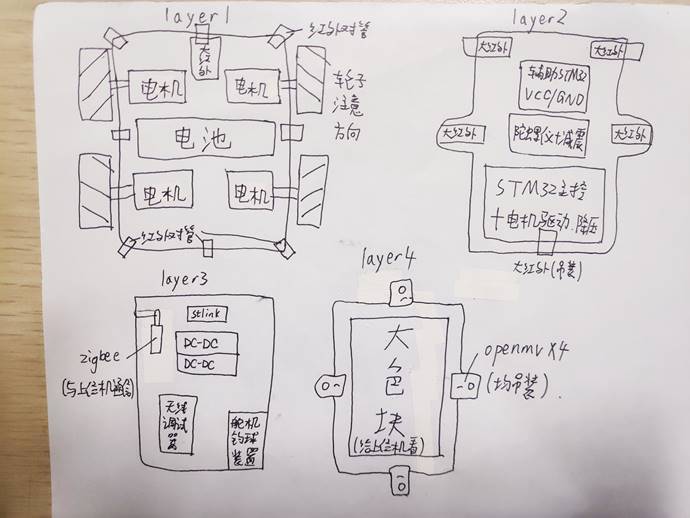 layer1
红外对管
大红外
电机
电机
车轮子
注意
方向
电池
电机
电机
红外对管
layer2
大红外
大红外
车辅助STM32
VCC/GND
大红外
陀螺仪+减震
大红外
STM32主控
+电机驱动.降压
大红外(吊装)
layer3
stlink
zigbee
(与上位机通信)
DC-DC
DC-DC
无线
调试
器
舵机
钩球
装置
layer4
大
色
块
(给上位机看)
openmv X4
(均吊装).